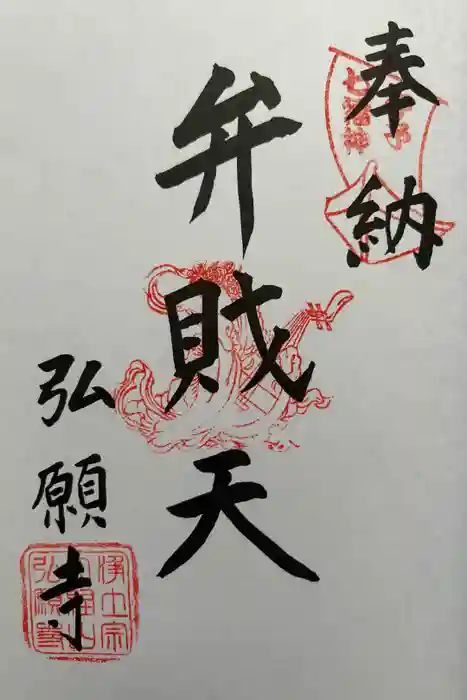 奉納
弁財天
弘願寺
七福神
浄土宗
弘願寺